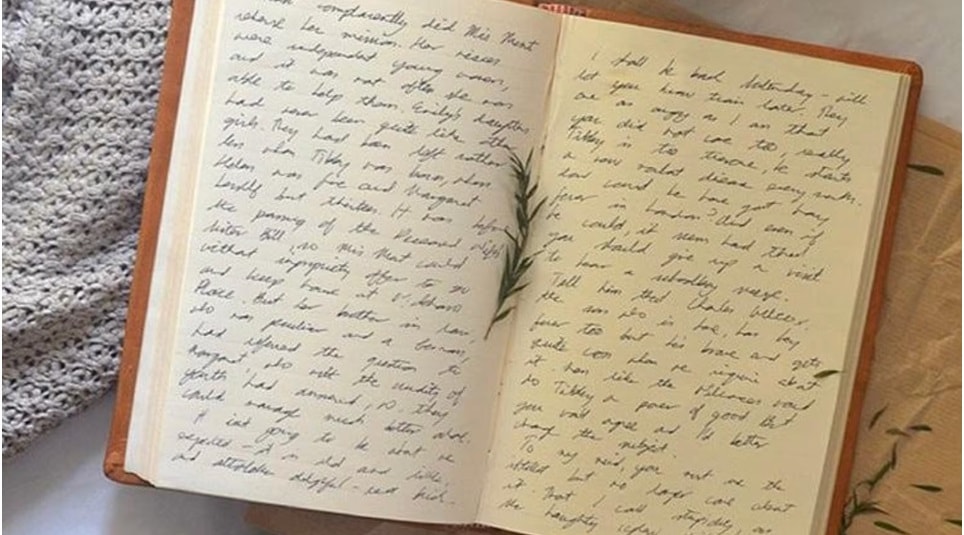 complacently did Miss Munt
rehearse her mission. Her nieces
were independent young women,
and it was not often she was
able to help them. Emily's daughters
had never been quite like other
girls. They had been left mother
less when Tibby was born, when
Helen was five and Margaret
herself but thirteen. It was before
the passing of the Deceased Wife's
Sister Bill, so Mrs Munt could
without impropriety offer to go
and keep house at Wickham
Place. But her brother in law,
who was peculiar and a German,
had referred the question to
Margaret, who with the crudity of
youth had answered, No. they
could manage much better alone.
It isn't going to be what we
expected - it is old and little,
and altogether delightful - red brick.
I shall be back Saturday - will
let you know train later. They
are as angry as I am that
you did not come too, really
Tibby is too tiresome, he starts
a new mortal disease every month.
how could he have got hay
fever in London? And even if
he could, it seem hard that
you should give up a visit
to hear a schoolboy sneeze.
Tell him that Charles Wilcox,
the son who is here, has hay
fever too but he's brave and gets
quite cross when we inquire about
it. Men like the Wilcoxes would
do Tibby a power of good But
you won't agree and I'd better
change the subject.
To my mind, you must see the
but no longer care about
it. That I call stupidity, as
the naughty